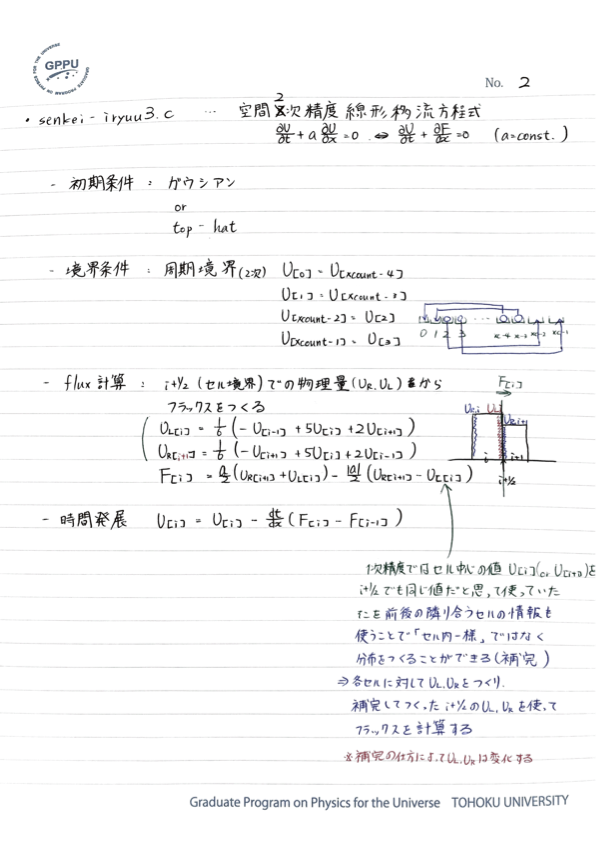 GPPU
GRADUATE PROGRAM ON PHYSICS FOR THE UNIVERSE
No. 2
・senkei-iryuu3.c … 空間2次精度 線形移流方程式
∂U/∂t + a ∂U/∂x = 0 ⇔ ∂U/∂t + ∂F/∂x = 0 (a=const.)
- 初期条件 : ガウシアン
or
top-hat
- 境界条件 : 周期境界(2次) U[0] = U[xcount-4]
U[1] = U[xcount-3]
U[xcount-2] = U[2]
U[xcount-1] = U[3]
0 1 2 3 … xc-4 xc-3 xc-2 xc-1
- flux計算 : i+1/2 (セル境界) での物理量(UR, UL) から
フラックスをつくる
UL[i] = 1/6 (-U[i-1] + 5U[i] + 2U[i+1])
UR[i+1] = 1/6 (-U[i+1] + 5U[i] + 2U[i-1])
F[i] = a/2 (UR[i+1] + UL[i]) - |a|/2 (UR[i+1] - UL[i])
F[i]
UL
i i+1
i+1/2
- 時間発展 U[i] = U[i] - dt/dx (F[i] - F[i-1])
1次精度ではセル中心の値 U[i](or U[i+1])を
i+1/2でも同じ値だと思って使っていた
を前後の隣り合うセルの情報も
使うことで「セル内一様」ではなく
分布をつくることができる(補完)
⇒各セルに対してUL, URをつくり.
補完してつくった i+1/2のUL, URを使って
フラックスを計算する
※補完の仕方によってUL, URは変化する
Graduate Program on Physics for the Universe TOHOKU UNIVERSITY